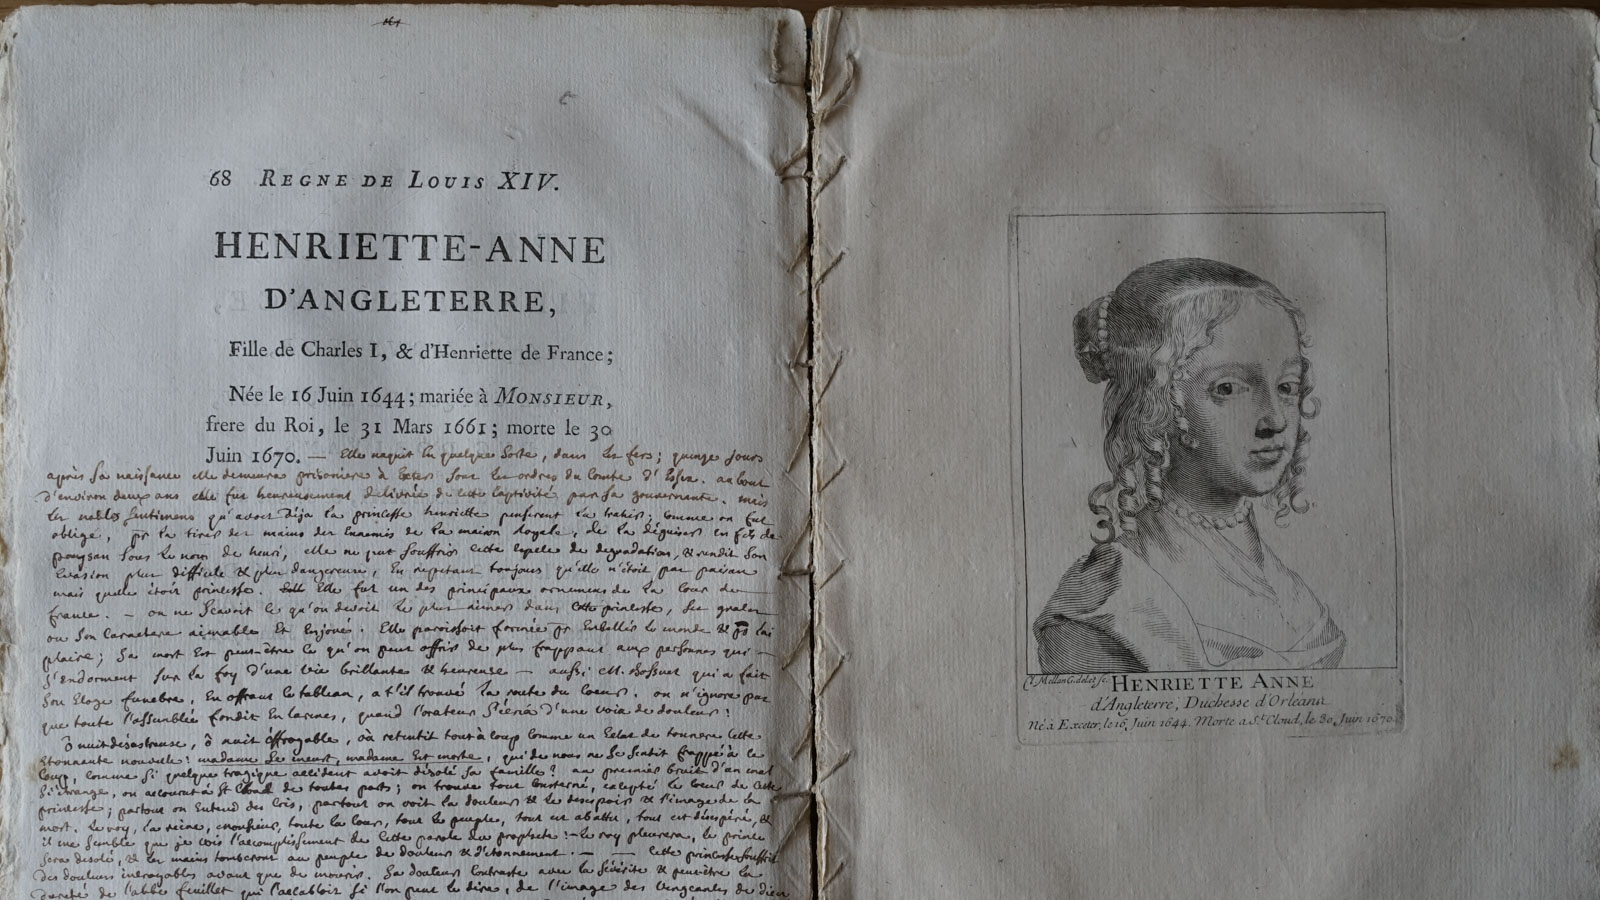 68 REGNE DE LOUIS XIV.
HENRIETTE-ANNE
D'ANGLETERRE,
Fille de Charles I, & d'Henriette de France;
Née le 16 Juin 1644; mariée à MONSIEUR,
frere du Roi, le 31 Mars 1661; morte le 30
Juin 1670. — Elle naquit en quelque sorte, dans les fers; quinze jours
après sa naissance elle demeura prisoniere à Exeter sous les ordres du Comte d'Essex. au bout
d'environ deux ans elle fut heureusement délivrée de cette captivité par sa gouvernante. mais
les nobles sentimens qu'avoit déja la princesse henriette penserent la trahir; comme on fut
obligé, pr la tirer des mains des Ennemis de la maison Royale, de la déguiser en fils de
paysan sous le nom de henri, elle ne put souffrir cette espece de dégradation, & rendit son
Evasion plus difficile & plus dangereuse, en repetant toujours qu'elle n'étoit pas paisan
mais quelle étoit princesse. Elle fut un des principaux ornemens de la cour de
france. — on ne scavoit ce qu'on devoit le plus aimer dans cette princesse, ses graces
ou son caractere aimable et enjoué. Elle paroissoit formée pr embellir le monde & pr lui
plaire; sa mort est peut-être ce qu'on peut offrir de plus frappant aux personnes qui —
s'endorment sur la foy d'une vie brillante & heureuse — aussi M. Bossuet qui a fait
son Eloge funebre, en offrant ce tableau, a t'il trouvé la route du coeur. on n'ignore pas
que toute l'assemblée fondit en larmes, quand l'orateur s'écria d'une voix de douleur:
ô nuit désastreuse, ô nuit effroyable, où retentit tout à coup comme un Eclat de tonnerre cette
étonnante nouvelle: madame se meurt, madame est morte, qui de nous ne se sentit frappé à ce
coup, comme si quelque tragique accident avoit désolé sa famille? au premier bruit d'un mal
si étrange, on accourut à St Cloud de toutes parts; on trouve tout consterné, excepté le coeur de cette
princesse; partout on entend des cris, partout on voit la douleur & le désespoir & l'image de la
mort. Le roy, la reine, monsieur, toute la cour, tout le peuple, tout est abattu, tout est désespéré, &
il me semble que je vois l'accomplissement de cette parole du prophete: — le roy pleurera, le prince
sera désolé, & les mains tomberont au peuple de douleur & d'étonnement. — — cette princesse souffrit
des douleurs incroyables avant que de mourir. Sa douleur contraste avec la sévérité & peut-être la
dureté de l'abbé feuillet qui l'accabloit si l'on peut le dire, de l'image des vengeances de dieu
Cl. Mellan G. del et sc.
HENRIETTE ANNE
d'Angleterre, Duchesse d'Orleans
Né à Exceter, le 16, Juin 1644. Morte a St. Cloud, le 30, Juin 1670.